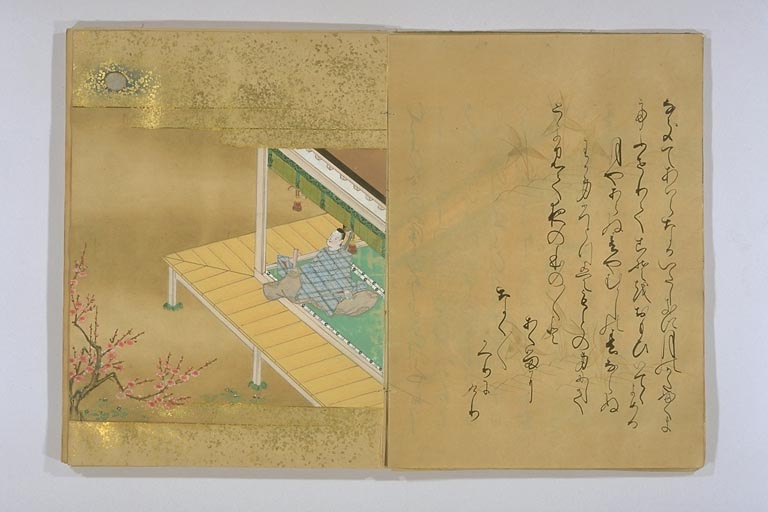 なきてあはらなるいたしきに月のかたふくま
てふせりてこそをおもひいてゝよめる
月やあらぬ春やむかしの春ならぬ
わか身ひとつはもとの身にして
とよみて夜のほの〳〵と
あくるに
なく〳〵
かへりに
けり